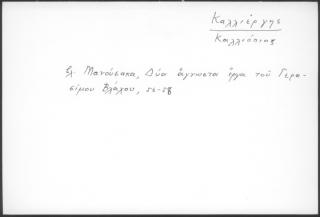 Καλλιέργης
Καλλιόπιος
βλ. Μανούσακα, Δύο ἄγνωστα ἔργα τοῦ Γερα-
σίμου Βλάχου, 56-58